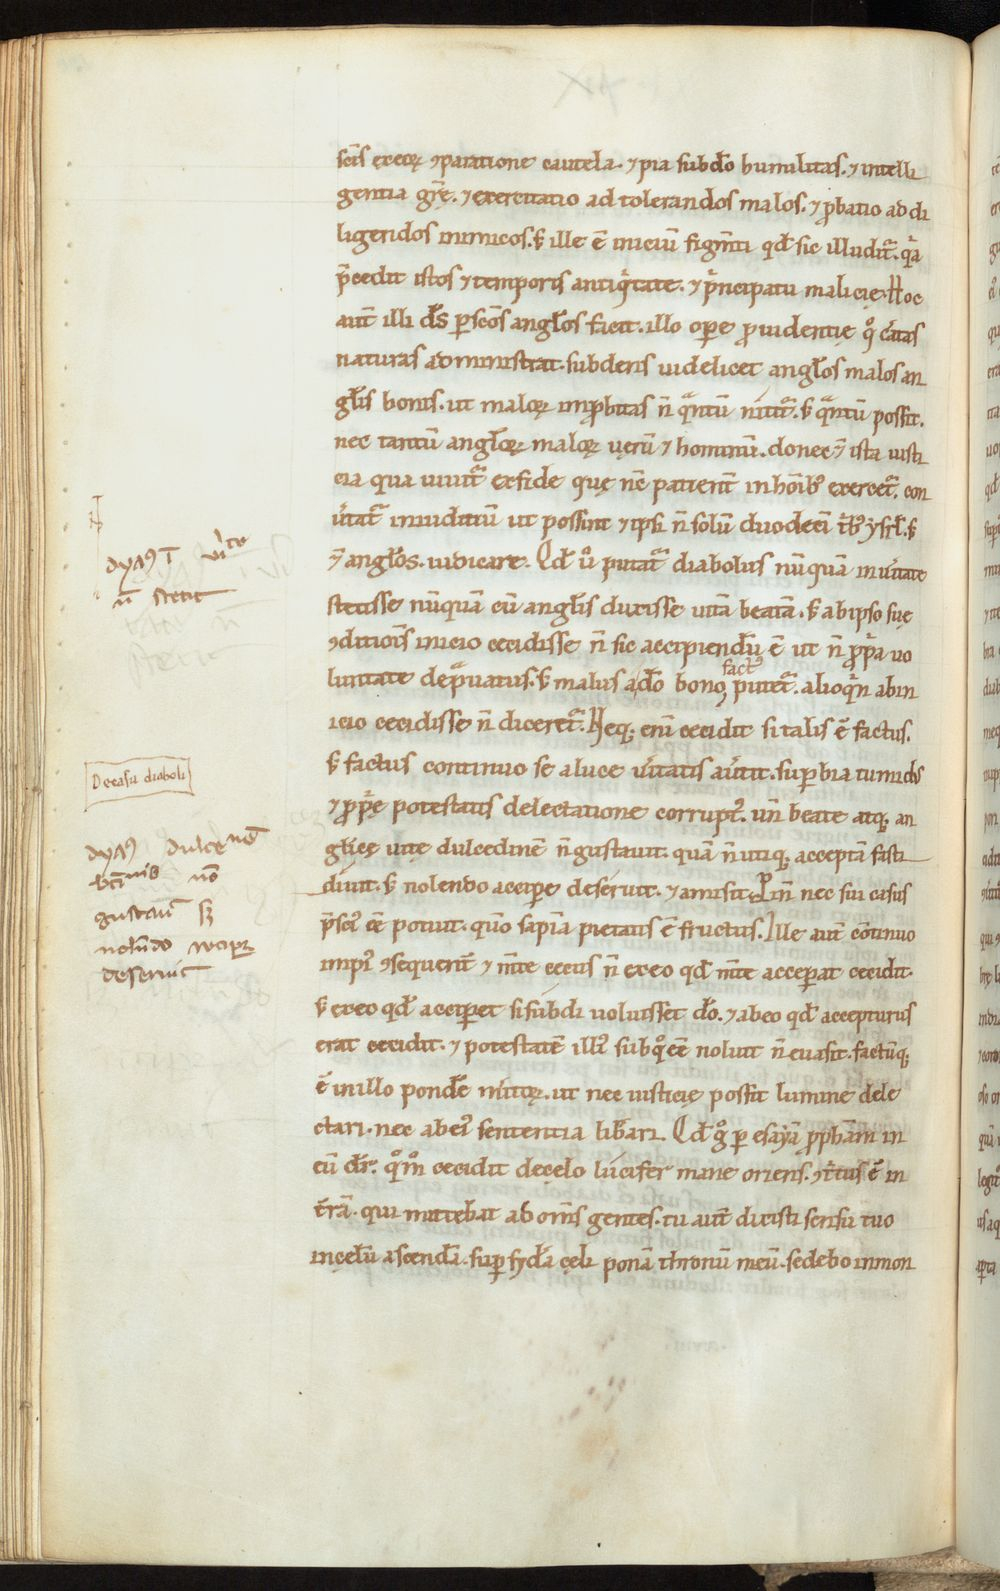 scīs ex eoꝝ ꝯparatione cautela. ⁊ pia sub dō humilitas. ⁊ intelli
gentia gr̄ę. ⁊ exercitatio ad tolerandos malos. ⁊ ꝓbatio ad di
ligendos inimicos. s; ille ē iniciū figm̄ti qd̄ sic illudit᷑. qͥa
p̄cedit istos ⁊ temporis antiqͥtate. ⁊ pͥncipatu malicię. Hoc
aut̄ illi ds̄ per scōs angłos facit. illo oꝑe ꝓuidentię qͦ c̓atas
naturas administrat. subdens uidelicet angłos malos an
głis bonis. ut maloꝝ improbitas n̄ qͣntū nitit᷑. s; qͣntū possit.
nec tantū angłoꝝ maloꝝ uerū ⁊ hominū. donec ⁊ ista iusti
cia qua uiuit᷑ ex fide quę nc̄ patient̄ in hoīb; exercet᷑. con
u̓tat᷑ in iudiciū ut possint ⁊ ipsi n̄ solū duodecī tͥb; isrł. s;
⁊ angłos iudicare. Qd̄ u̓o putat᷑ diabolus nūquā in u̓itate
stetisse nūquā cū angłis duxisse uitā beatā. s; ab ipso suę
ꝯditionis inicio cecidisse n̄ sic accipiendū ē ut n̄ ꝓpͥa uo
luntate dep̄uatus. s; malus a dō bono factꝰ putet᷑. alioqͥn ab in
icio cecidisse n̄ diceret᷑. Neq; enī cecidit si talis ē factus.
s; factus continuo se a luce u̓itatis au̓tit. supbia tumidꝰ
⁊ ꝓpͥę potestatis delectatione corruptꝰ. un̄ beate atq; an
głicę uitę dulcedinē n̄ gustauit. quā n̄ utiq; acceptā fasti
diuit. s; nolendo accipe deseruit. ⁊ amisit. Proīn nec sui casus
p̄sciꝰ eē potuit. qm̄ sapīa pietatis ē fructus. Ille aut̄ cōtinuo
impiꝰ ꝯsequent̄ ⁊ mte cecus n̄ ex eo qd̄ mte accepat cecidit.
s; ex eo qd̄ accipet si subdi uoluisset dō. ⁊ ab eo qd̄ accepturus
erat cecidit. ⁊ potestatē illiꝰ sub qͦ eē noluit n̄ euasit. factūq;
ē in illo pondē mitoꝝ. ut nec iusticię possit lumine dele
ctari. nec ab eiꝰ sententia libari. Qd̄ gͦ per esayā ꝓphām in
eū dr̄. qͦm̄ cecidit de cęlo lucifer mane oriens. ꝯtͥtus ē in
t̄rā. qui mittebat ad om̄s gentes. tu aut̄ dixisti sensu tuo
in cęlū ascendā. sup sydā cęli ponā thronū meū. sedebo in mon
dyaꝰ ī u̓ite
n̄ stetit
De casu diaboli
dyaꝰ dulce
nō
gustauit s;
nolēdo
deseruit